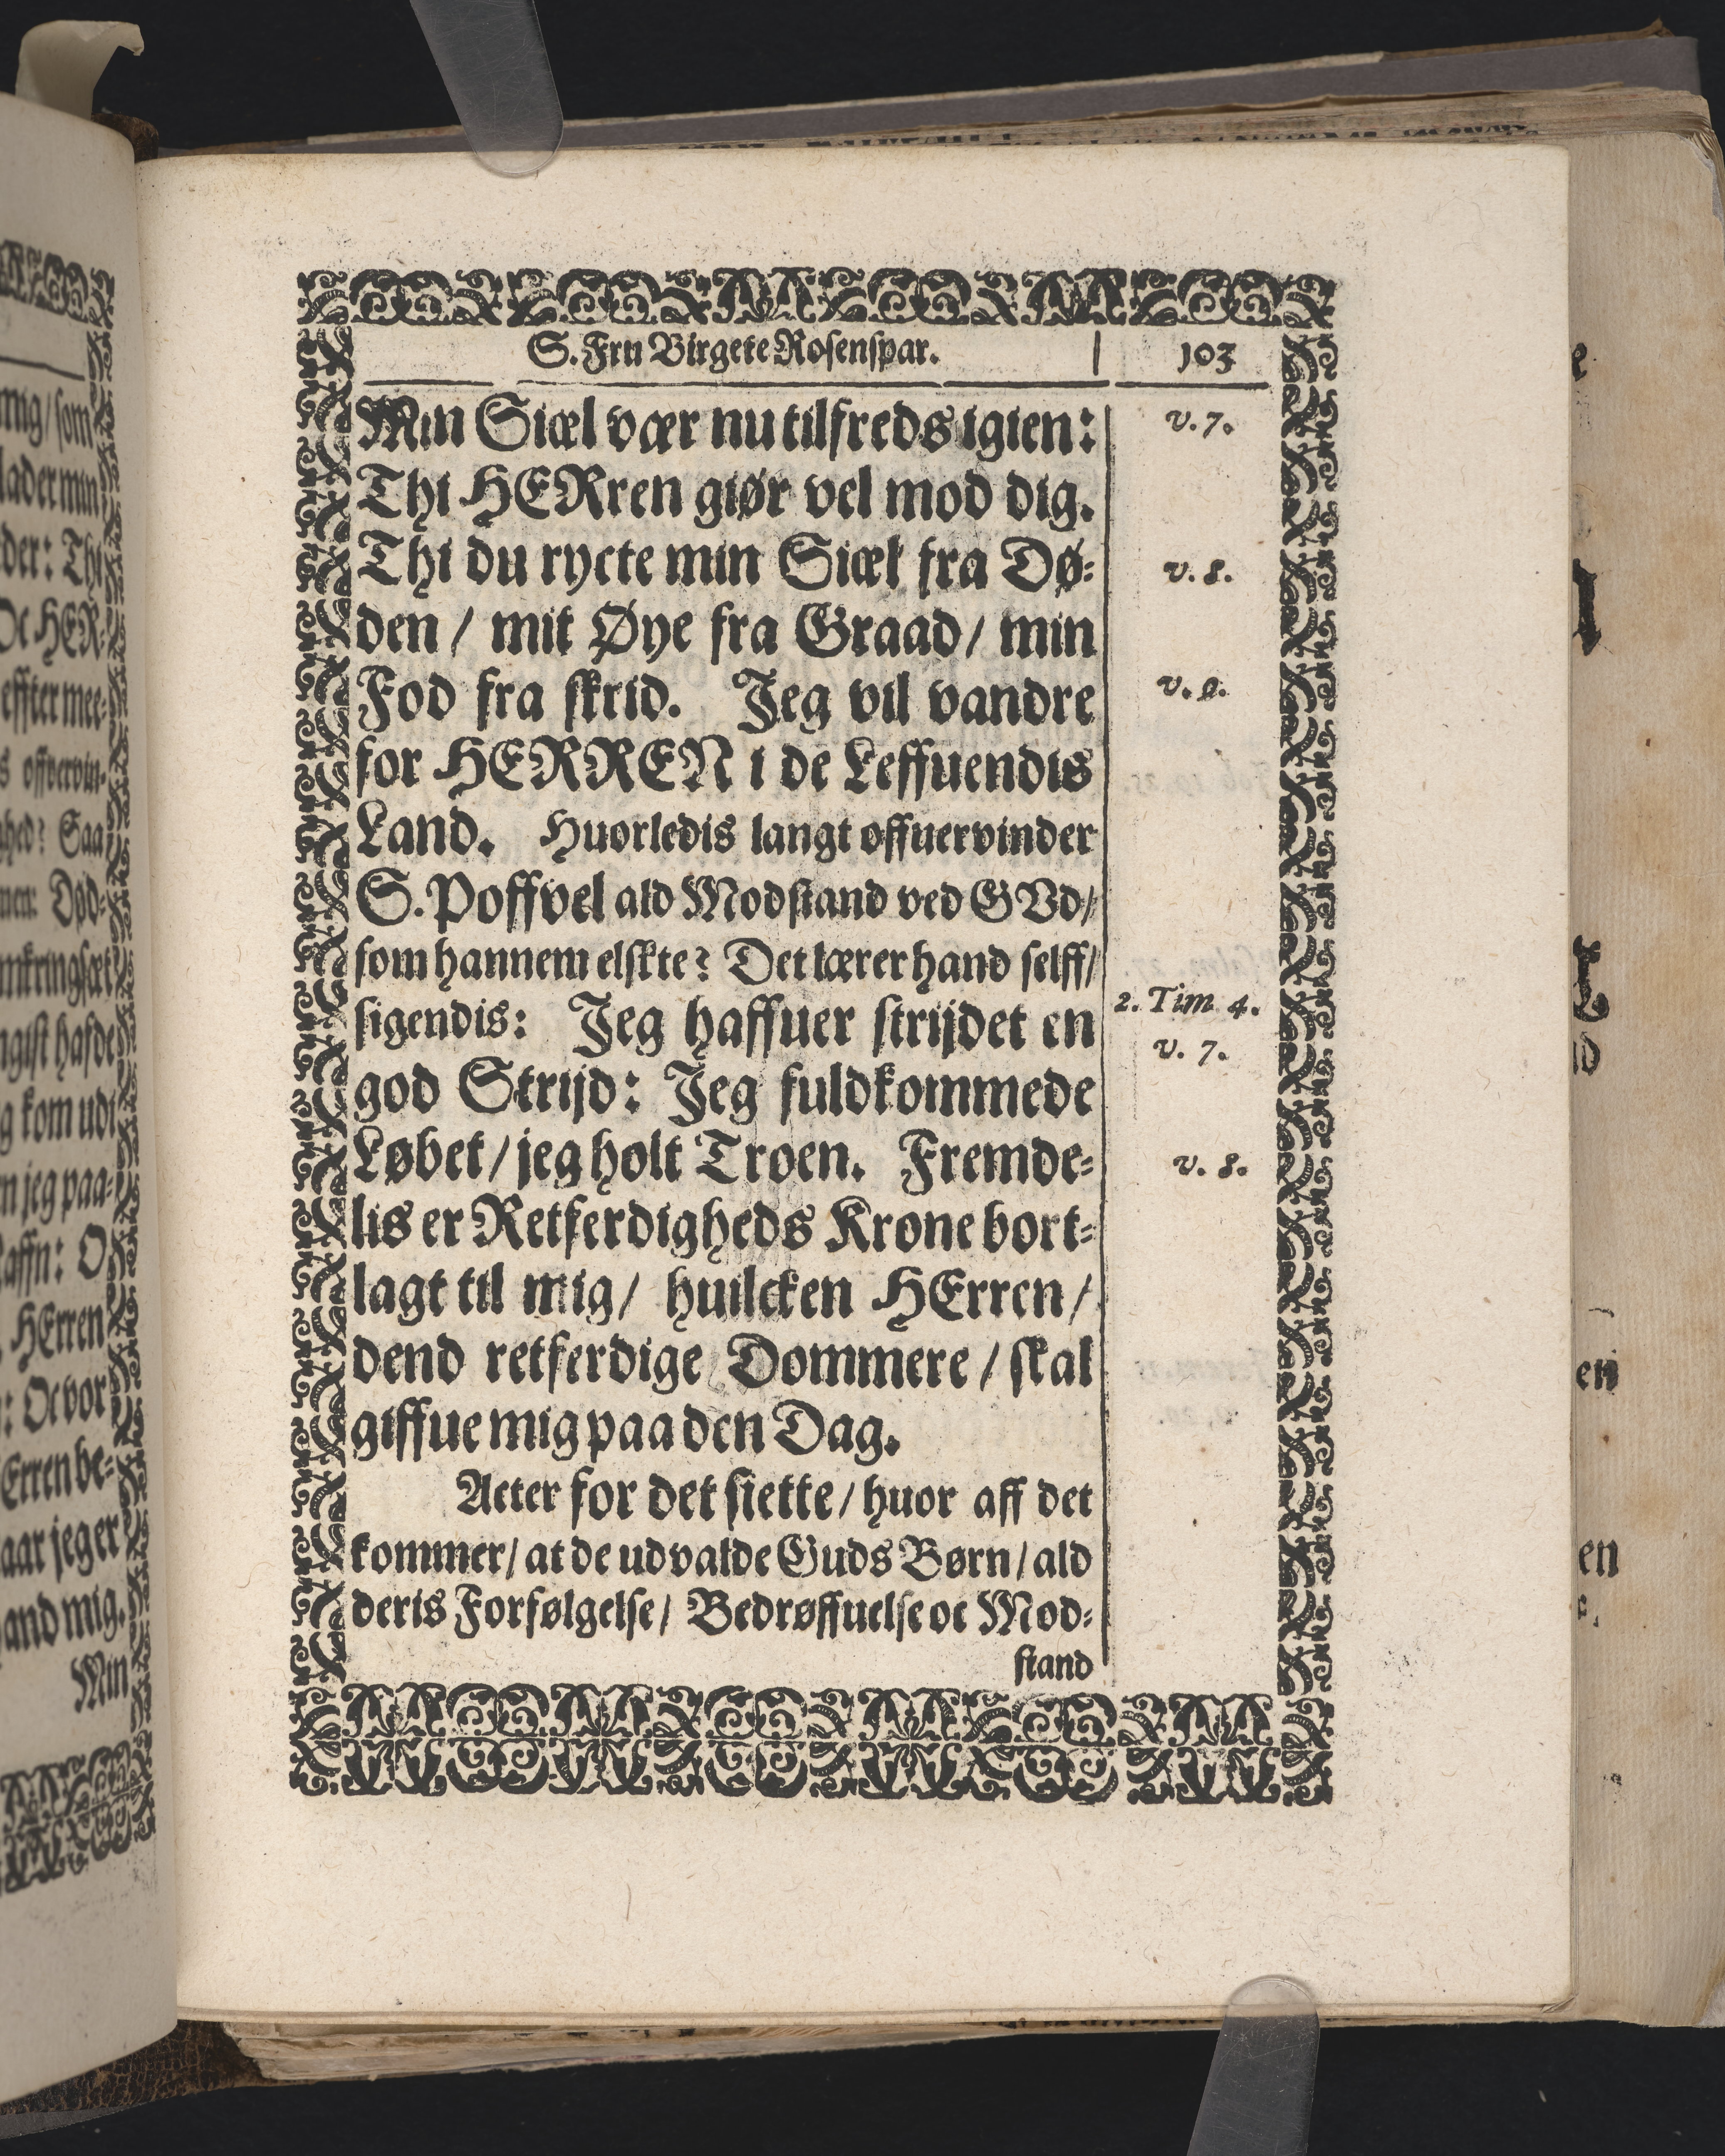 S. Fru Birgete Rosenspar. | 103
Min Siæl vær nu tilfreds igien:
v. 7.
Thi HERren giør vel mod dig.
Thi du rycte min Siæl fra Dø-
v. 8.
den / mit Øye fra Graad / min
Fod fra skrid. Jeg vil vandre
v. 9.
for HERREN i de Leffuendis
Land. Huorledis langt offuervinder
S. Poffvel ald Modstand ved GVd /
som hannem elskte? Det lærer hand selff /
sigendis: Jeg haffuer strijdet en
2. Tim 4.
v. 7.
god Strijd: Jeg fuldkommede
Løbet / jeg holt Troen. Fremde-
v. 8.
lis er Retferdigheds Krone bort-
lagt til mig / huilcken HErren /
dend retferdige Dommere / skal
giffue mig paa den Dag.
Acter for det siette / huor aff det
kommer / at de udvalde Guds Børn / ald
deris Forfølgelse / Bedrøffuelse oc Mod-
stand